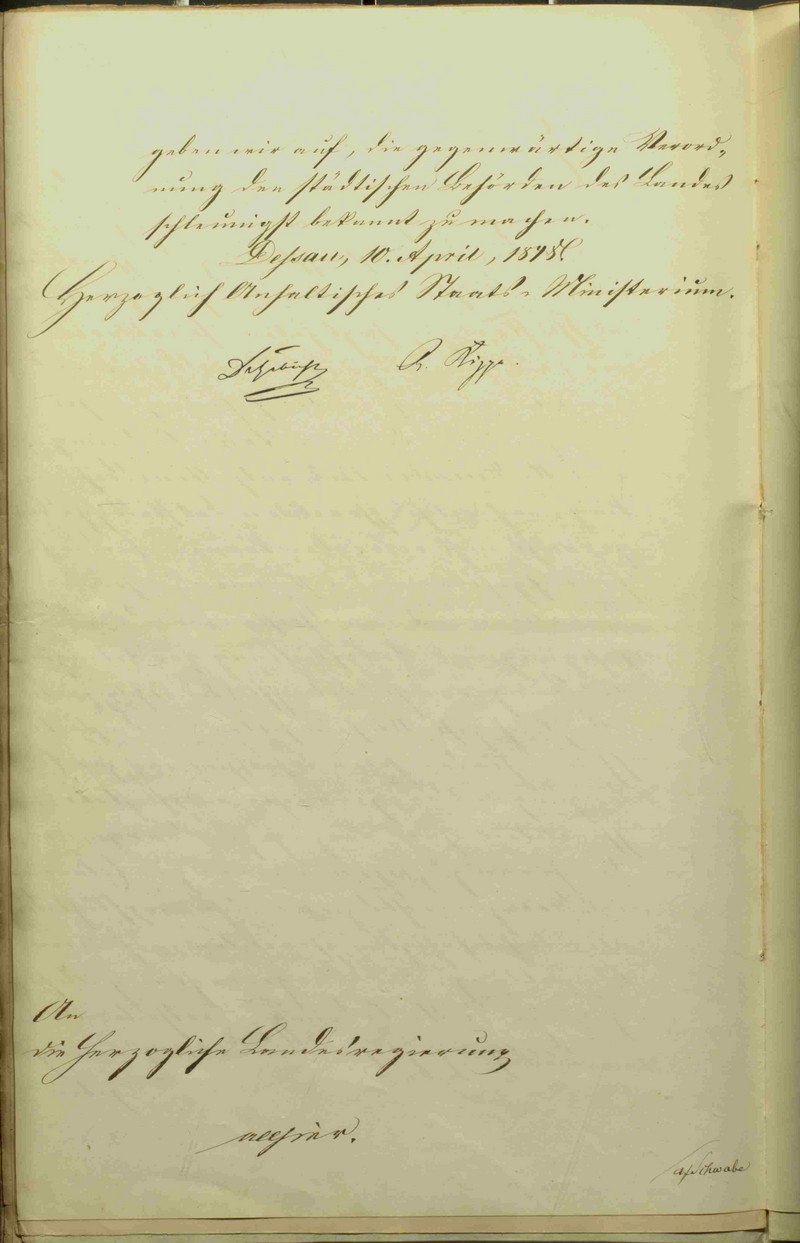 geben wir auf, die gegenwärtige Verord-
nung den städtischen Behörden des Landes
schleunigst bekannt zu machen.
Dessau, 10. April, 1878
Herzoglich Anhaltisches Staats-Ministerium.
An
die Herzogliche Landesregierung
allhier.
Schwabe